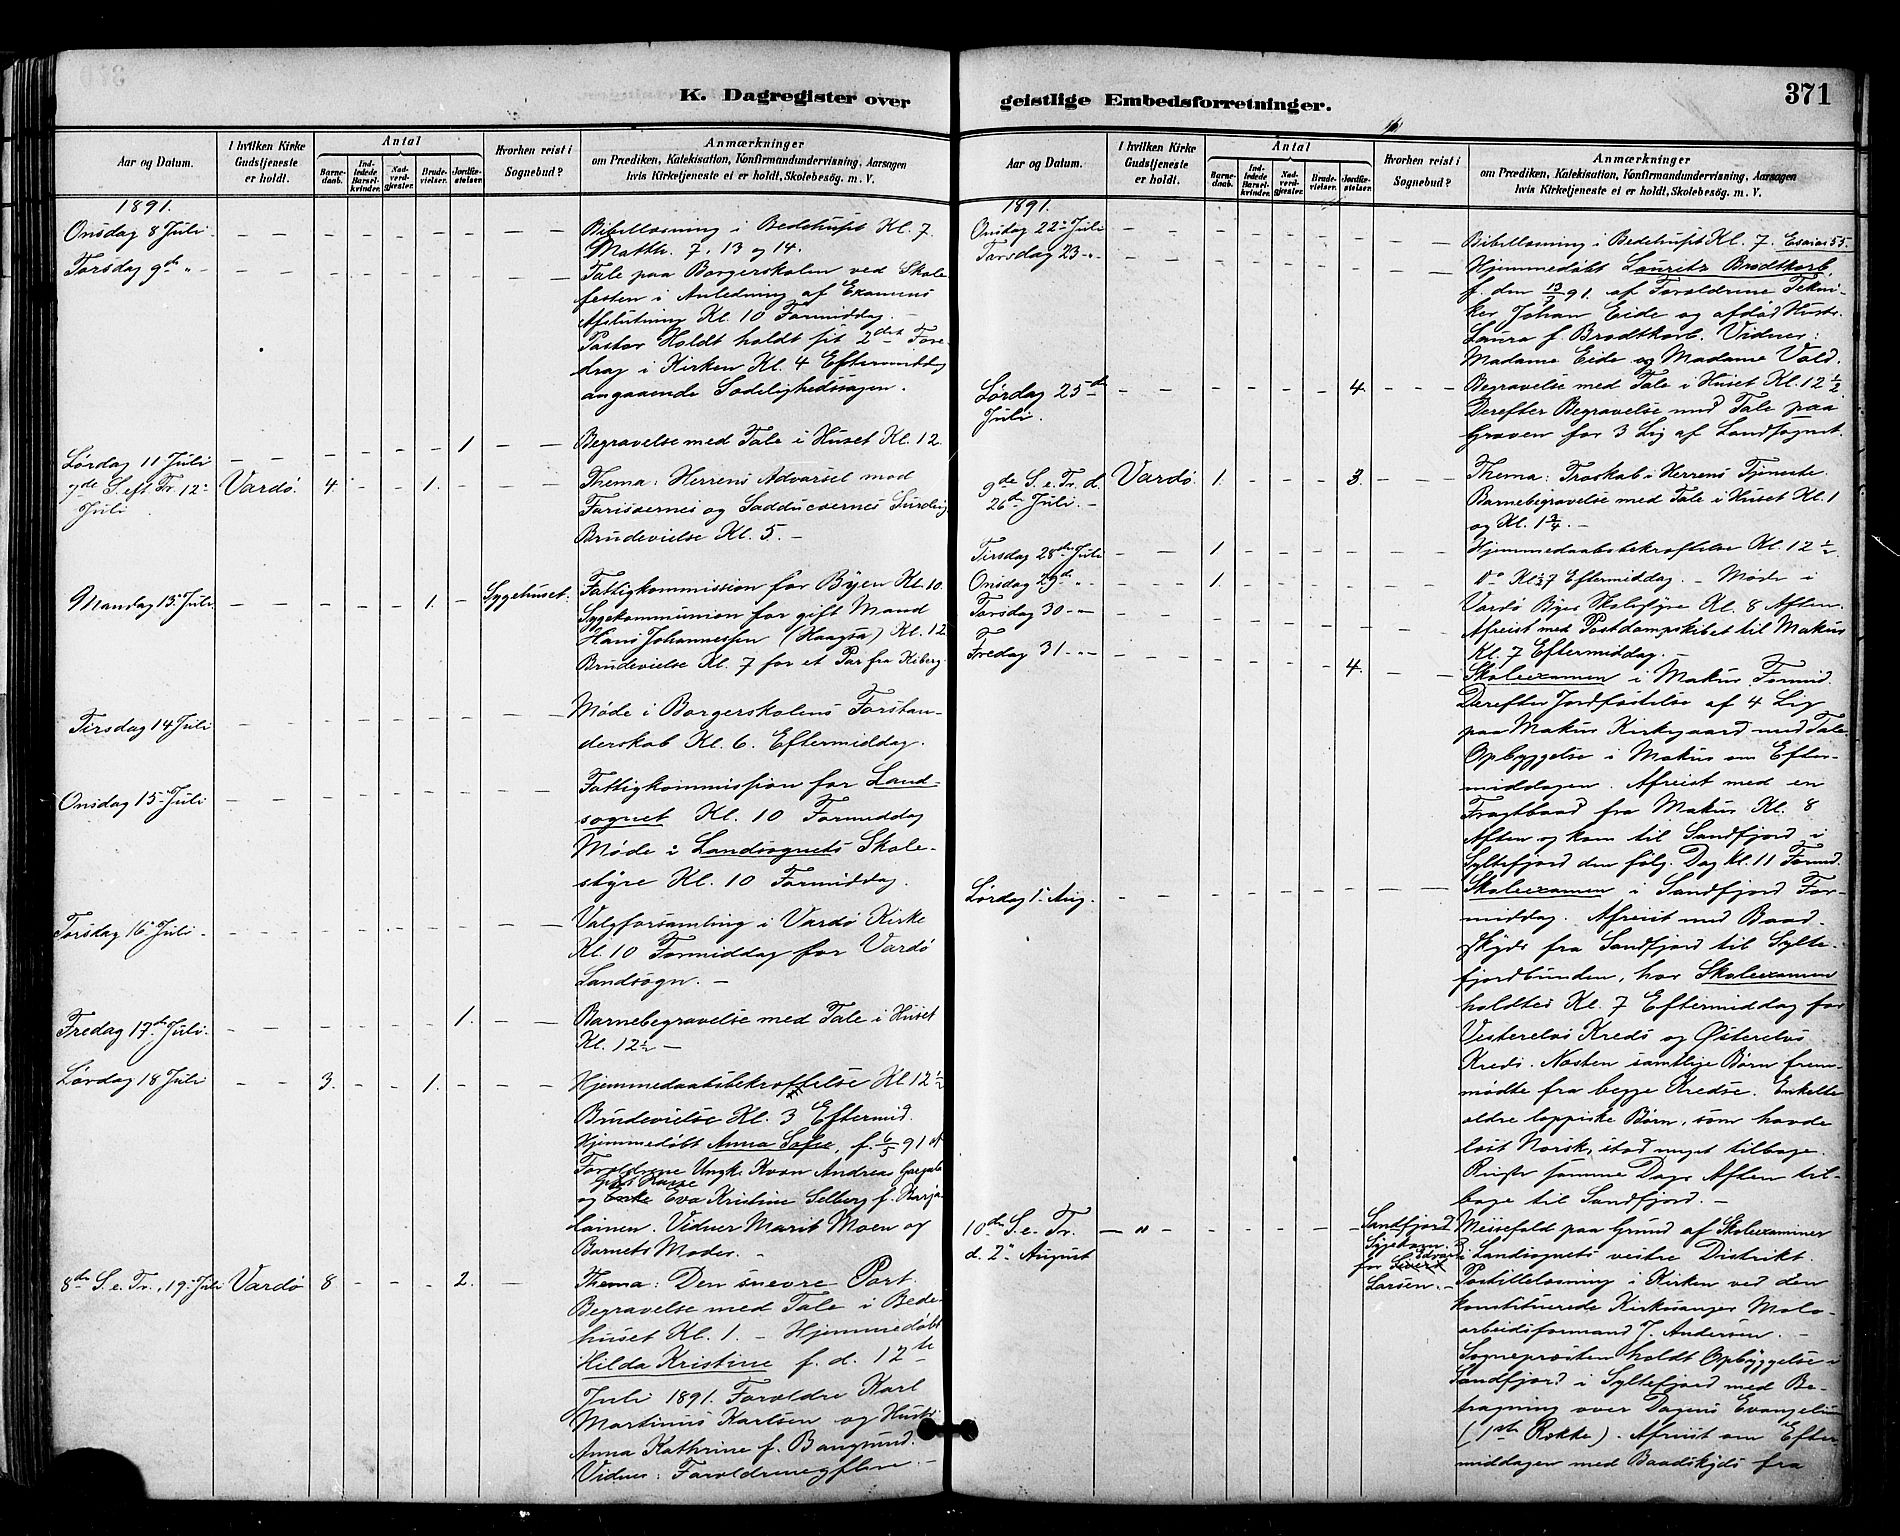 K. Dagregister over
Aar og Datum.
I hvilken Kirke Gudstjeneste er holdt.
Antal
Barnedaab.
Indledede Barselkvinder.
Nadverdgjester.
Brudevielser.
Jordfæstelser.
Hvorhen reist i Sognebud?
Anmærkninger
om Prædiken, Katekisation, Konfirmandundervisning, Aarsagen
hvis Kirketjeneste ei er holdt, Skolebesög. m. V.
1891.
Onsdag 8 Juli
Bibellæsning i Bedehuset Kl. 7.
Matth. 7. 13 og 14.
Torsdag 9de "
Tale paa Borgerskolen ved Skole-
festen i Anledning af Examens
Afslutning Kl. 10 Formiddag.
Pastor Holdt holdt sit 2det Fore-
drag i Kirken Kl. 4 Eftermiddag
angaaende Sædelighedssagen.
Lørdag 11 Juli
1
Begravelse med Tale i Huset Kl. 12.
7de S. eft. Tr. 12
Juli
Vardö.
4.
1.
Thema: Herrens Advarsel mod
Farisæernes og Sadducæernes Surdeig.
Brudevielse Kl. 5. –
Mandag 13 Juli
1.
Sygehuset.
Fattigkommission for Byen Kl. 10.
Sygekommunion for gift Mand
Hans Johannessen (Haagsa) Kl. 12
Brudevielse Kl. 7 for et Par fra Kiberg
Tirsdag 14 Juli
Møde i Borgerskolens Forstan-
derskab Kl. 6. Eftermiddag.
Onsdag 15 Juli
Fattigkommission for Land-
sognet Kl. 10 Formiddag
Møde i Landsognets Skole-
styre Kl. 10 Formiddag.
Torsdag 16 Juli
Valgforsamling i Vardö Kirke
Kl. 10 Formiddag for Vardö
Landsogn. –
Fredag 17de Juli
1.
Barnebegravelse med Tale i Huset
Kl. 12½ –
Lørdag 18 Juli
3.
1.
Hjemmedaabsbekræftelse Kl 12 ½
Brudevielse Kl. 3 Eftermid.
Hjemmedøbt Anna Sofie, f. 6/5 91 af
Forældrene Ungk. Kvæn Andreas
og Enke Eva Kristine Selberg f. Karja-
lainen. Vidner Marit Moen og
Barnets Moder. –
8de S. e. Tr., 19 Juli
Vardö
8
2.
Thema: Den snevre Port.
Begravelse med Tale i Bede-
huset Kl. 1. – Hjemmedøbt
Hilda Kristine f. d. 12te
Juli 1891. Forældre Karl
Martinus Karlsen og Hustr.
Anna Kathrine f. Bangsund.
Vidner: Forældrene
geistlige Embedsforretninger.
371
Aar og Datum.
I hvilken Kirke Gudstjeneste er holdt.
Antal
Barnedaab.
Indledede Barselkvinder.
Nadverdgjester.
Brudevielser.
Jordfæstelser.
Hvorhen reist i Sognebud?
Anmærkninger
om Prædiken, Katekisation, Konfirmandundervisning, Aarsagen
hvis Kirketjeneste ei er holdt, Skolebesög. m. V.
1891.
Onsdag 22 Juli
Bibellæsning i Bedehuset Kl. 7. Esaias 55.
Torsdag 23 "
Hjemmedøbt Lauritz Brodtkorb,
f. den 13/7 91. af Forældrene Tekni-
ker Johan Eide og afdød Hustr.
Laura f. Brodtkorb. Vidner:
Madame Eide og Madame Vold.
Lørdag 25de
Juli.
4.
Begravelse med Tale i Huset Kl. 12 ½
Derefter Begravelse med Tale paa
Graven for 3 Lig af Landsognet.
9de S. e. Tr. d.
26de Juli. –
Vardö.
1.
3.
Thema: Troskab i Herrens Tjeneste.
Barnebegravelse med Tale i Huset Kl. 1
og Kl. 1 ¾. –
Tirsdag 28de Juli
1
Hjemmedaabsbekræftelse Kl. 12 ½
Onsdag 29de "
1.
do Kl ½7 Eftermiddag. – Møde i
Vardö Byes Skolestyre Kl. 8 Aften.
Torsdag 30 "
Afreist med Postdampskibet til Makur
Kl. 7 Eftermiddag. –
Fredag 31 "
4.
Skoleexamen i Makur Formid.
Derefter Jordfæstelse af 4 Lig
paa Makur Kirkegaard med Tale.
Opbyggelse i Makur om Efter-
middagen. Afreist med en
Fragtbaad fra Makur Kl. 8
Aften og kom til Sandfjord i
Syltefjord den fölg. Dag Kl. 11 Formid.
Lørdag 1 Aug.
Skoleexamen i Sandfjord For-
middag. Afreist med Baad-
skyds fra Sandfjord til Sylte-
fjordbunden, hvor Skoleexamen
holdtes Kl. 7 Eftermiddag for
Vesterelvs Kreds og Østerelvs
Kreds. Næsten samtlige Børn frem-
mødte fra begge Kredse. Enkelte
ældre lappiske Børn, som havde
læst Norsk, stod meget tilbage.
Reiste samme Dags Aften til-
bage til Sandfjord. –
10de S. e. Tr.
d. 2 August
"
Sandfjord
for
Larsen. –
Messefald paa Grund af Skoleexaminer
i Landsognets vestre Distrikt.
Postillelæsning i Kirken ved den
konstituerede Kirkesanger Molo-
arbeidsformand J. Andersen. –
Sognepresten holdt Opbyggelse i
Sandfjord i Syltefjord med Be-
tragtning over Dagens Evangelium
(1ste Række). Afreist om Efter-
middagen med Baadskyds fra